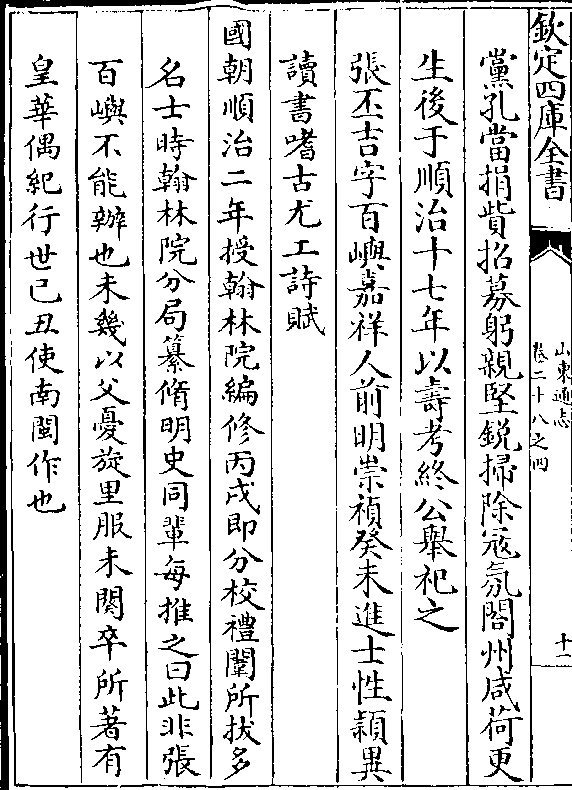 欽定四庫全書
山東通志
卷二十八之四
十二
黨孔當捐貲招募躬親堅銳掃除寇氛閤州咸荷更
生後于順治十七年以壽考終公舉祀之
張丕吉字百嶼嘉祥人前明崇禎癸未進士性穎異
讀書嗜古尤工詩賦
國朝順治二年授翰林院編修丙戌即分校禮闈所拔多
名士時翰林院分局纂脩明史同輩每推之曰此非張
百嶼不能辦也未幾以父憂旋里服未闋卒所著有
皇華偶紀行世己丑使南閩作也